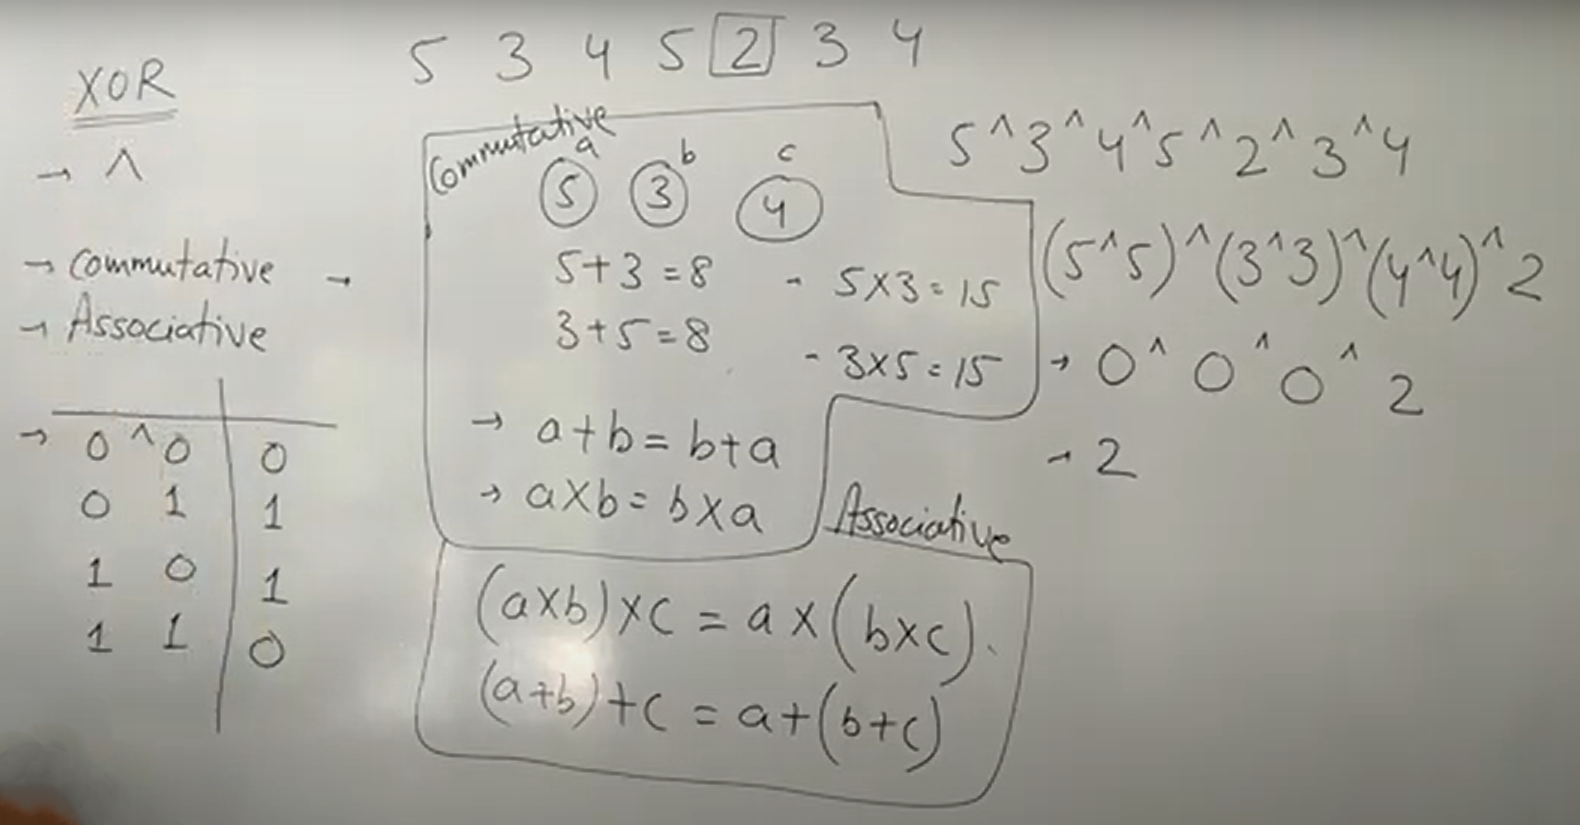 5 3 4 5 2 3 4
XOR
→ ^
→ Commutative -
→ Associative
→ 0 ^ 0 | 0
0 1 | 1
1 0 | 1
1 1 | 0
Commutative
a b c
5 3 4
5+3=8 - 5×3=15
3+5=8 - 3×5=15
→ a+b=b+a
→ a×b=b×a
Associative
(a×b)×c = a×(b×c).
(a+b)+c = a+(b+c)
5^3^4^5^2^3^4
(5^5)^(3^3)^(4^4)^2
→ 0^0^0^2
→ 2